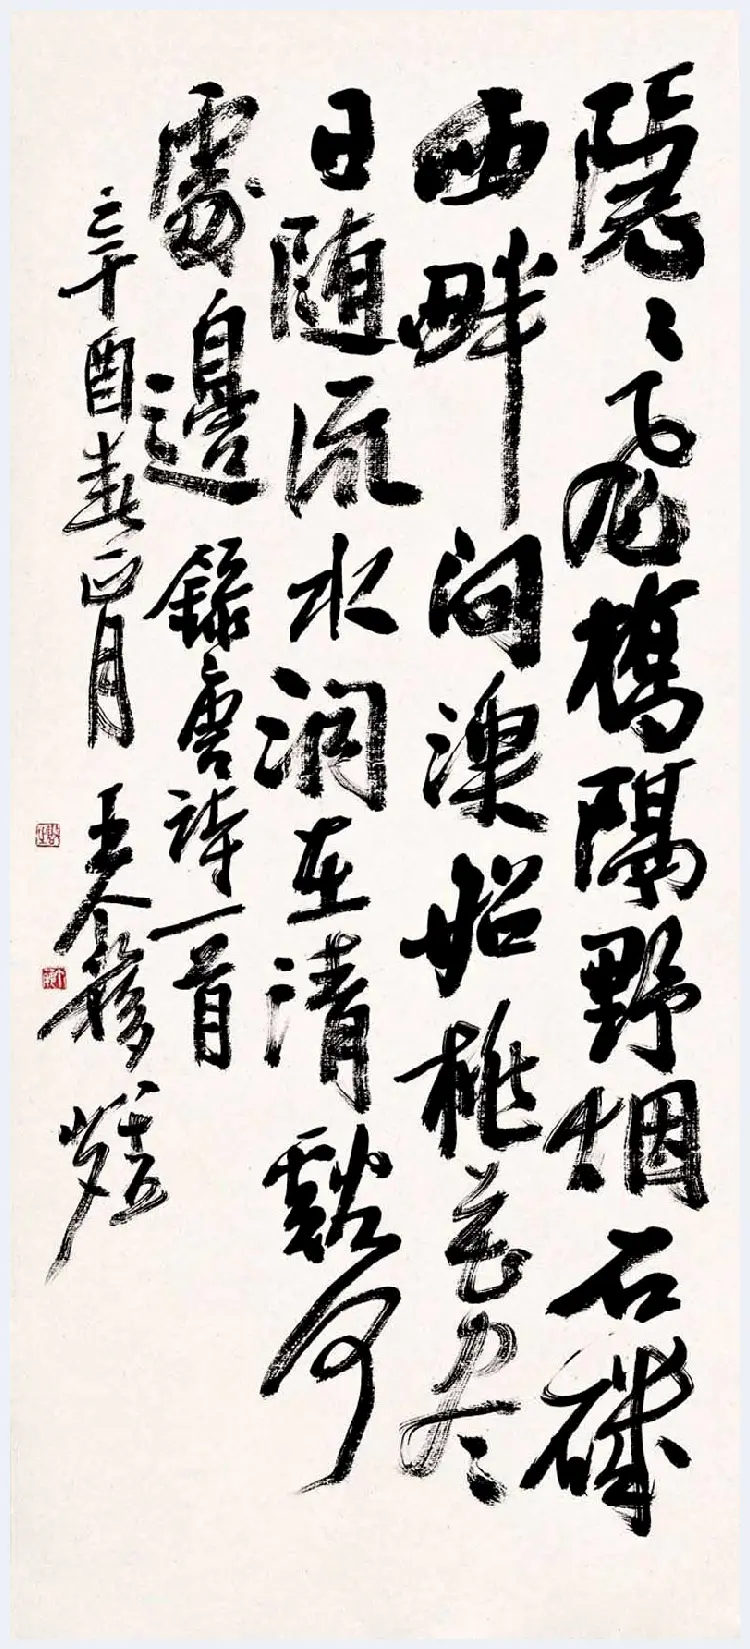 隱〻飛橋隔野烟石磯
西畔问漁船桃花尽
日随流水洞在清谿何
處邊 錄唐詩一首
辛酉春正月 王个簃